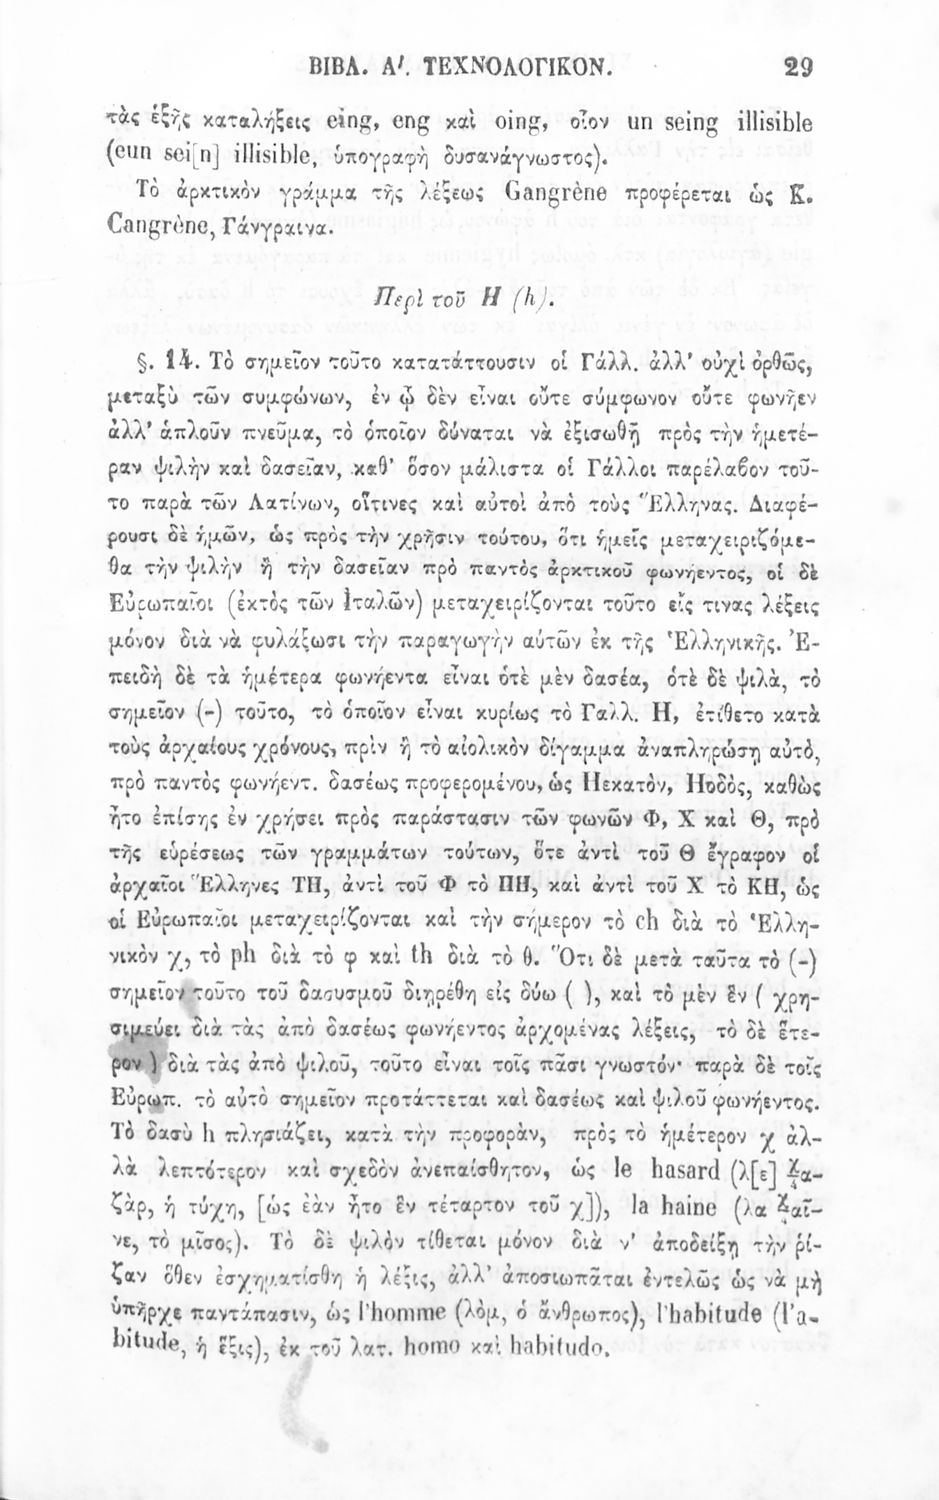 ΒΙΒΛ. Α′. ΤΕΧΝΟΛΟΓΙΚΟΝ. 29
τὰς ἑξῆς καταλήξεις eing, eng καὶ oing, οἷον un seing illisible
(eun sei[n] illisible, ὑπογραφὴ δυσανάγνωστος).
Τὸ ἀρκτικὸν γράμμα τῆς λέξεως Gangrène προφέρεται ὡς Κ.
Cangrène, Γάνγραινα.
Περὶ τοῦ H (h).
§. 14. Τὸ σημεῖον τοῦτο κατατάττουσιν οἱ Γάλλ. ἀλλ' οὐχὶ ὀρθῶς,
μεταξὺ τῶν συμφώνων, ἐν ᾧ δὲν εἶναι οὔτε σύμφωνον οὔτε φωνῆεν
ἀλλ' ἁπλοῦν πνεῦμα, τὸ ὁποῖον δύναται νὰ ἐξισωθῇ πρὸς τὴν ἡμετέ-
ραν ψιλὴν καὶ δασεῖαν, καθ' ὅσον μάλιστα οἱ Γάλλοι παρέλαβον τοῦ-
το παρὰ τῶν Λατίνων, οἵτινες καὶ αὐτοὶ ἀπὸ τοὺς Ἕλληνας. Διαφέ-
ρουσι δὲ ἡμῶν, ὡς πρὸς τὴν χρῆσιν τούτου, ὅτι ἡμεῖς μεταχειριζόμε-
θα τὴν ψιλὴν ἢ τὴν δασεῖαν πρὸ παντὸς ἀρκτικοῦ φωνήεντος, οἱ δὲ
Εὐρωπαῖοι (ἐκτὸς τῶν Ἰταλῶν) μεταχειρίζονται τοῦτο εἴς τινας λέξεις
μόνον διὰ νὰ φυλάξωσι τὴν παραγωγὴν αὐτῶν ἐκ τῆς Ἑλληνικῆς. Ἐ-
πειδὴ δὲ τὰ ἡμέτερα φωνήεντα εἶναι ὁτὲ μὲν δασέα, ὁτὲ δὲ ψιλὰ, τὸ
σημεῖον (-) τοῦτο, τὸ ὁποῖον εἶναι κυρίως τὸ Γαλλ. H, ἐτίθετο κατὰ
τοὺς ἀρχαίους χρόνους, πρὶν ἢ τὸ αἰολικὸν δίγαμμα ἀναπληρώσῃ αὐτὸ,
πρὸ παντὸς φωνήεντ. δασέως προφερομένου, ὡς Ηεκατὸν, Ηοδὸς, καθὼς
ἦτο ἐπίσης ἐν χρήσει πρὸς παράστασιν τῶν φωνῶν Φ, Χ καὶ Θ, πρὸ
τῆς εὑρέσεως τῶν γραμμάτων τούτων, ὅτε ἀντὶ τοῦ Θ ἔγραφον οἱ
ἀρχαῖοι Ἕλληνες ΤΗ, ἀντὶ τοῦ Φ τὸ ΠΗ, καὶ ἀντὶ τοῦ Χ τὸ ΚΗ, ὡς
οἱ Εὐρωπαῖοι μεταχειρίζονται καὶ τὴν σήμερον τὸ ch διὰ τὸ Ἑλλη-
νικὸν χ, τὸ ph διὰ τὸ φ καὶ th διὰ τὸ θ. Ὅτι δὲ μετὰ ταῦτα τὸ (-)
σημεῖον τοῦτο τοῦ δασυσμοῦ διῃρέθη εἰς δύω ( ), καὶ τὸ μὲν ἓν ( χρη-
σιμεύει διὰ τὰς ἀπὸ δασέως φωνήεντος ἀρχομένας λέξεις, τὸ δὲ ἕτε-
ρον ) διὰ τὰς ἀπὸ ψιλοῦ, τοῦτο εἶναι τοῖς πᾶσι γνωστόν· παρὰ δὲ τοῖς
Εὐρωπ. τὸ αὐτὸ σημεῖον προτάττεται καὶ δασέως καὶ ψιλοῦ φωνήεντος.
Τὸ δασὺ h πλησιάζει, κατὰ τὴν προφορὰν, πρὸς τὸ ἡμέτερον χ ἀλ-
λὰ λεπτότερον καὶ σχεδὸν ἀνεπαίσθητον, ὡς le hasard (λ[ε] χα-
ζὰρ, ἡ τύχη, [ὡς ἐὰν ἦτο ἓν τέταρτον τοῦ χ]), la haine (λα χαῖ-
νε, τὸ μῖσος). Τὸ δὲ ψιλὸν τίθεται μόνον διὰ ν' ἀποδείξῃ τὴν ῥί-
ζαν ὅθεν ἐσχηματίσθη ἡ λέξις, ἀλλ' ἀποσιωπᾶται ἐντελῶς ὡς νὰ μὴ
ὑπῆρχε παντάπασιν, ὡς l'homme (λὸμ, ὁ ἄνθρωπος), l'habitude (l'a-
bitude, ἡ ἕξις), ἐκ τοῦ λατ. homo καὶ habitudo.